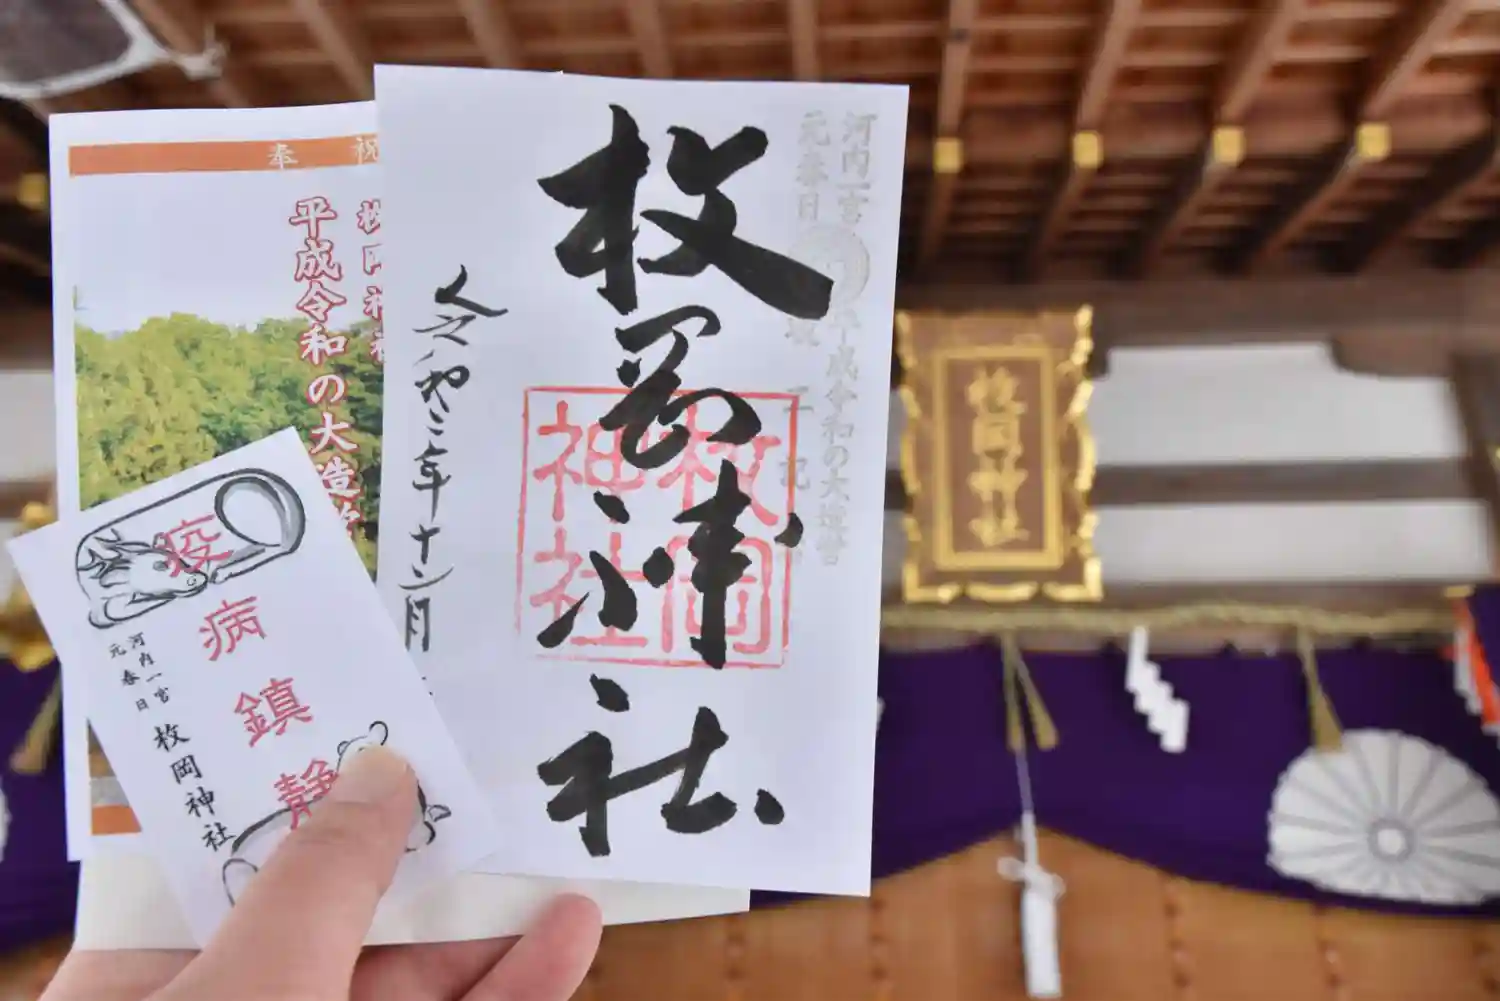 奉 祝
平成令和の大造
疫病鎮静
河内一宮
元春日
枚岡神社
枚岡神社
令和三年十二月
枚岡
神社
河内一宮
元春日
平成令和の大造営
記
枚岡神社